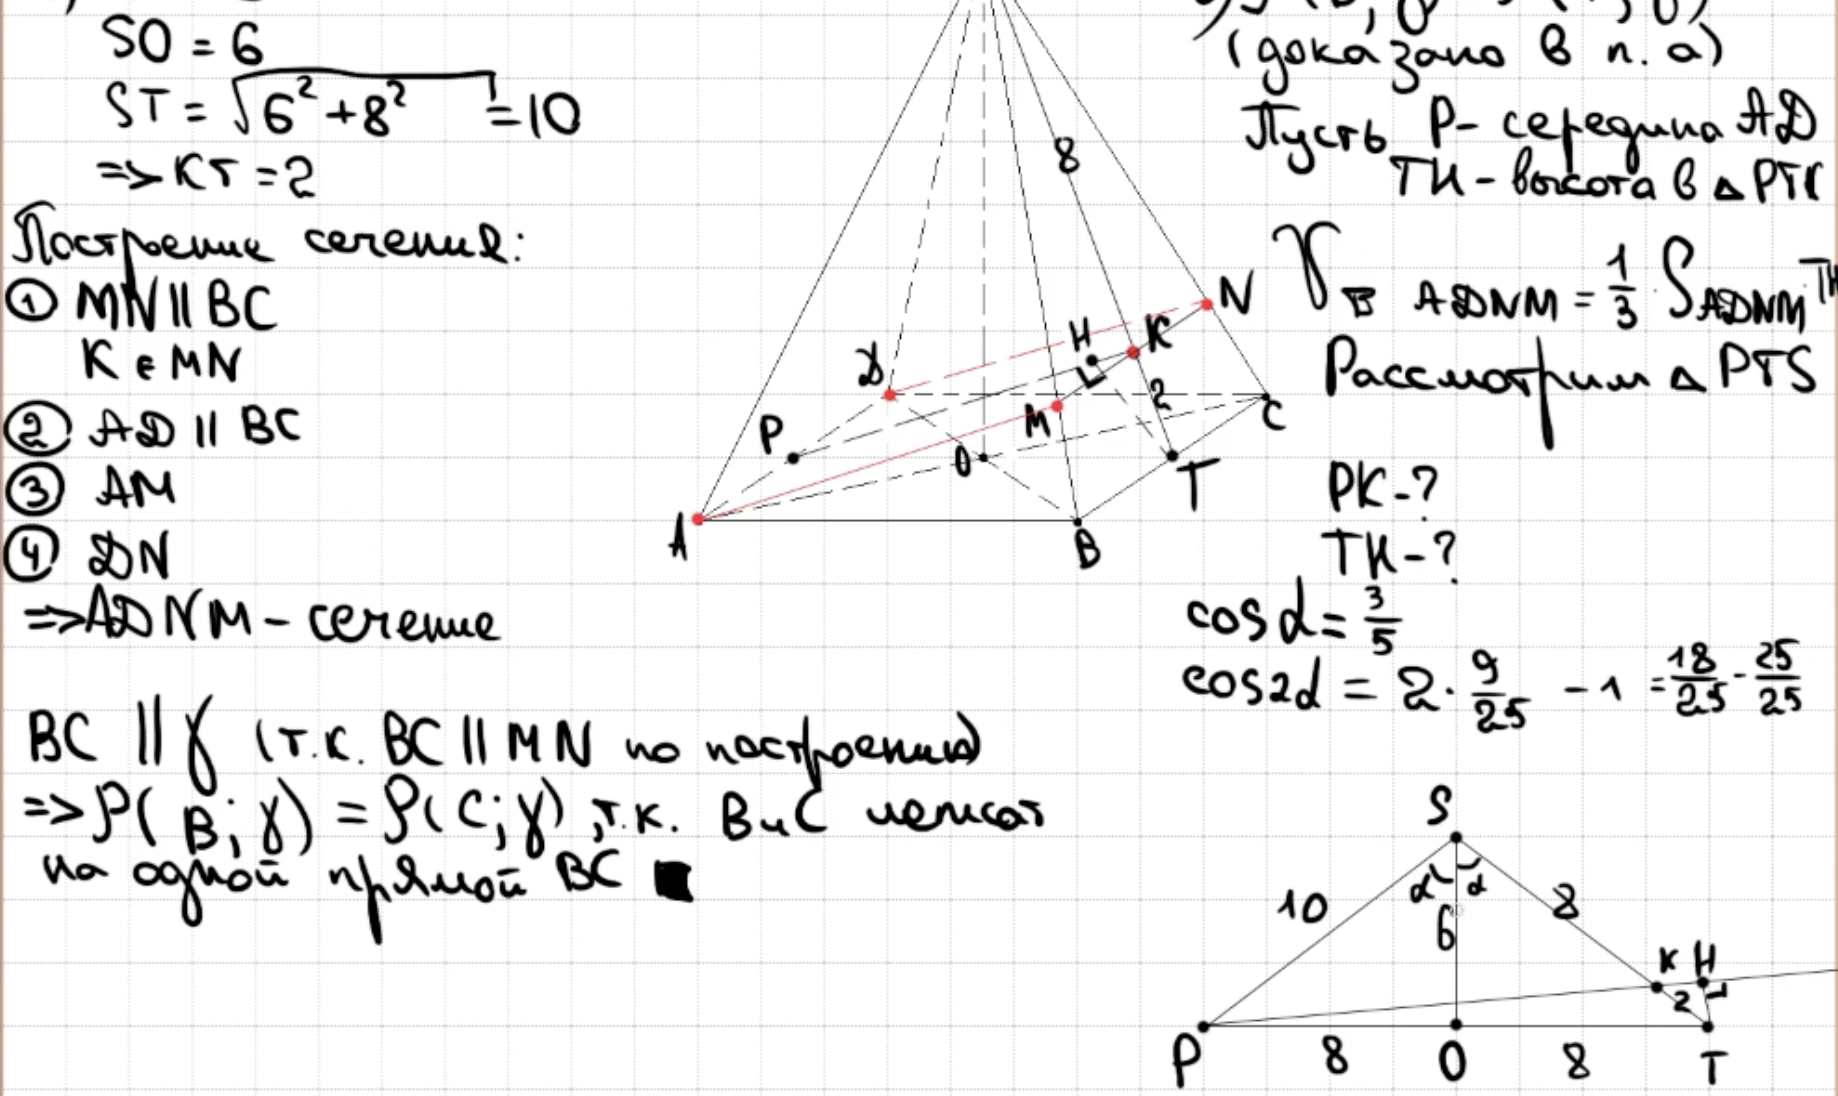 SO = 6
ST = √6² + 8² = 10
=> KT = 2
Построение сечения:
① MN || BC
K ∈ MN
② AD || BC
③ AM
④ DN
=> ADNM - сечение
BC || γ (т.к. BC || MN по построению)
=> ρ(B; γ) = ρ(C; γ), т.к. B и C лежат
на одной прямой BC ■
8
N
H
K
D
2
M
C
P
O
T
A
B
(доказано в п. а)
Пусть P - середина AD
TH - высота в △ PTK
V B ADNM = 1/3 · S ADNM · TH
Рассмотрим △ PTS
PK - ?
TH - ?
cos α = 3/5
cos 2α = 2 · 9/25 - 1 = 18/25 - 25/25
S
α α
10
6
8
K H
2
P 8 O 8 T